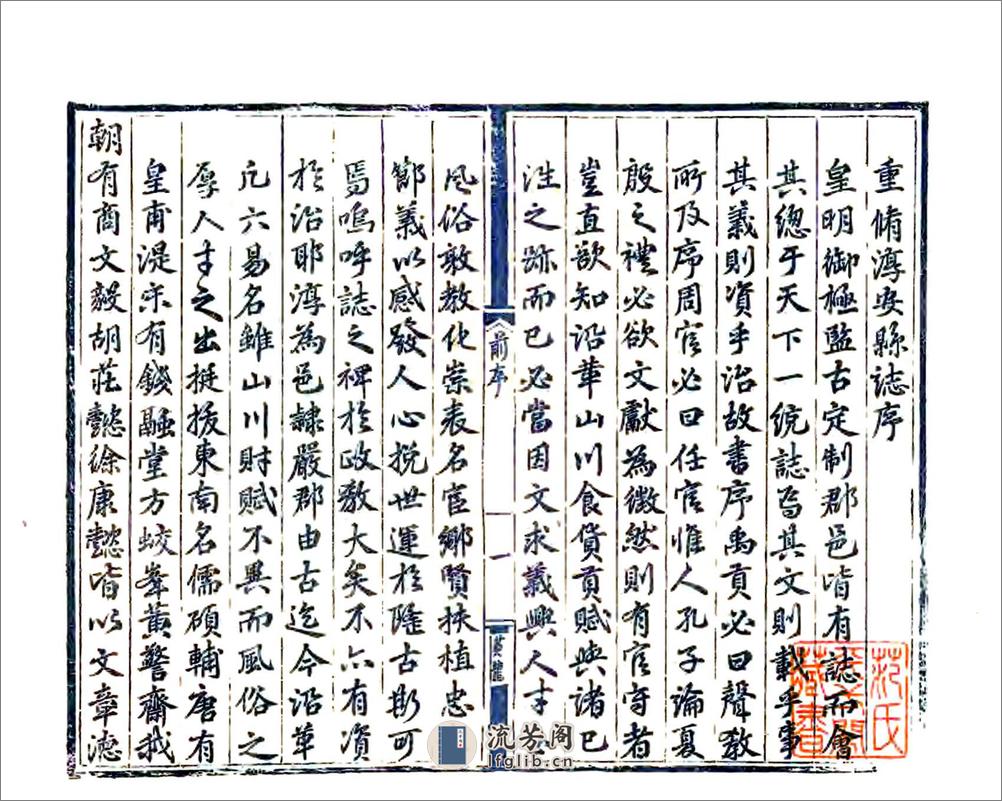 重脩淳安縣誌序
皇明御極監古定制郡邑皆有誌而會
其總于天下一統誌焉其文則載乎事
其義則資乎治故書序禹貢必曰聲敎
所及序周官必曰任官惟人孔子論夏
殷之禮必欲文獻為徵然則有官守者
豈直欲知沿革山川食貨貢賦與諸已
徃之跡而已必當因文求義興人才
風俗敦敎化崇表名宦鄉賢扶植忠
節義以感發人心挽世運於隆古斯可
焉嗚呼誌之裨於政敎大矣不亦有資
於治耶淳為邑隸嚴郡由古迄今沿革
凡六易名雖山川財賦不異而風俗之
厚人才之出挺拔東南名儒碩輔唐有
皇甫湜宋有錢融堂方蛟峯黃警齋我
朝有商文毅胡莊懿徐康懿皆以文章德
前序
一
范氏
天一閣
藏書
流芳阁
lfglib.cn